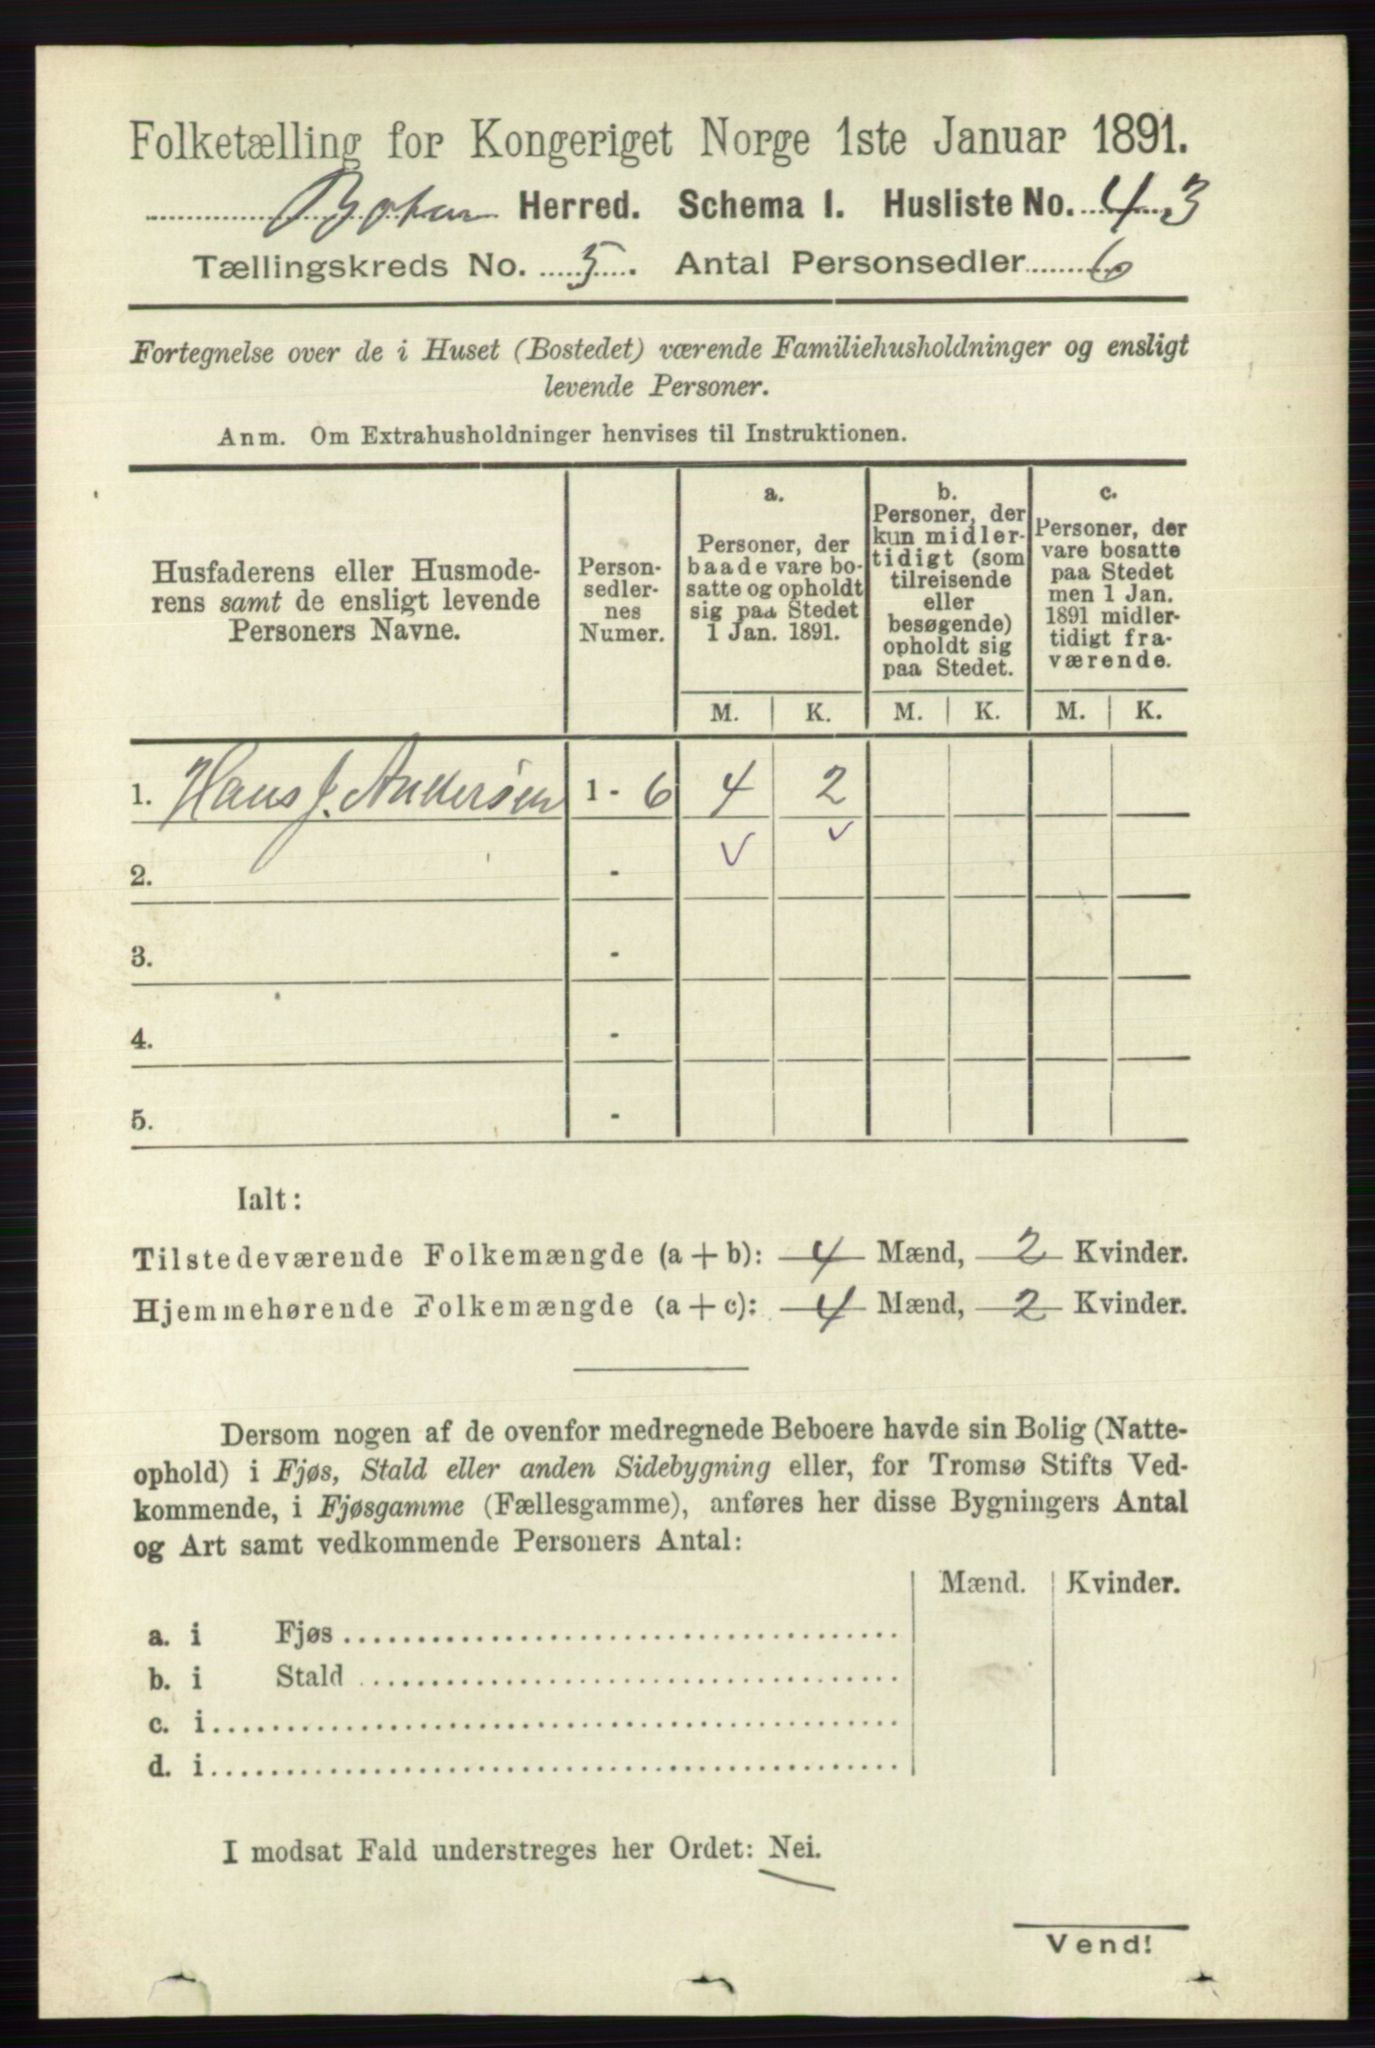 Folketælling for Kongeriget Norge 1ste Januar 1891.
Herred. Schema I. Husliste No. 43
Tællingskreds No. 5. Antal Personsedler 6
Fortegnelse over de i Huset (Bostedet) værende Familiehusholdninger og ensligt
levende Personer.
Anm. Om Extrahusholdninger henvises til Instruktionen.
Husfaderens eller Husmode-
rens samt de ensligt levende
Personers Navne.
Person-
sedler-
nes
Numer.
a.
Personer, der
baade vare bo-
satte og opholdt
sig paa Stedet
1 Jan. 1891.
b.
Personer, der
kun midler-
tidigt (som
tilreisende
eller
besøgende)
opholdt sig
paa Stedet.
c.
Personer, der
vare bosatte
paa Stedet
men 1 Jan.
1891 midler-
tidigt fra-
værende.
M. K. M. K. M. K.
1. Hans J. Andersen 1 - 6 4 2
2. -
3. -
4. -
5. -
Ialt:
Tilstedeværende Folkemængde (a + b): 4 Mænd, 2 Kvinder.
Hjemmehørende Folkemængde (a + c): 4 Mænd, 2 Kvinder.
Dersom nogen af de ovenfor medregnede Beboere havde sin Bolig (Natte-
ophold) i Fjøs, Stald eller anden Sidebygning eller, for Tromsø Stifts Ved-
kommende, i Fjøsgamme (Fællesgamme), anføres her disse Bygningers Antal
og Art samt vedkommende Personers Antal:
Mænd. Kvinder.
a. i Fjøs
b. i Stald
c. i
d. i
I modsat Fald understreges her Ordet: Nei.
Vend!